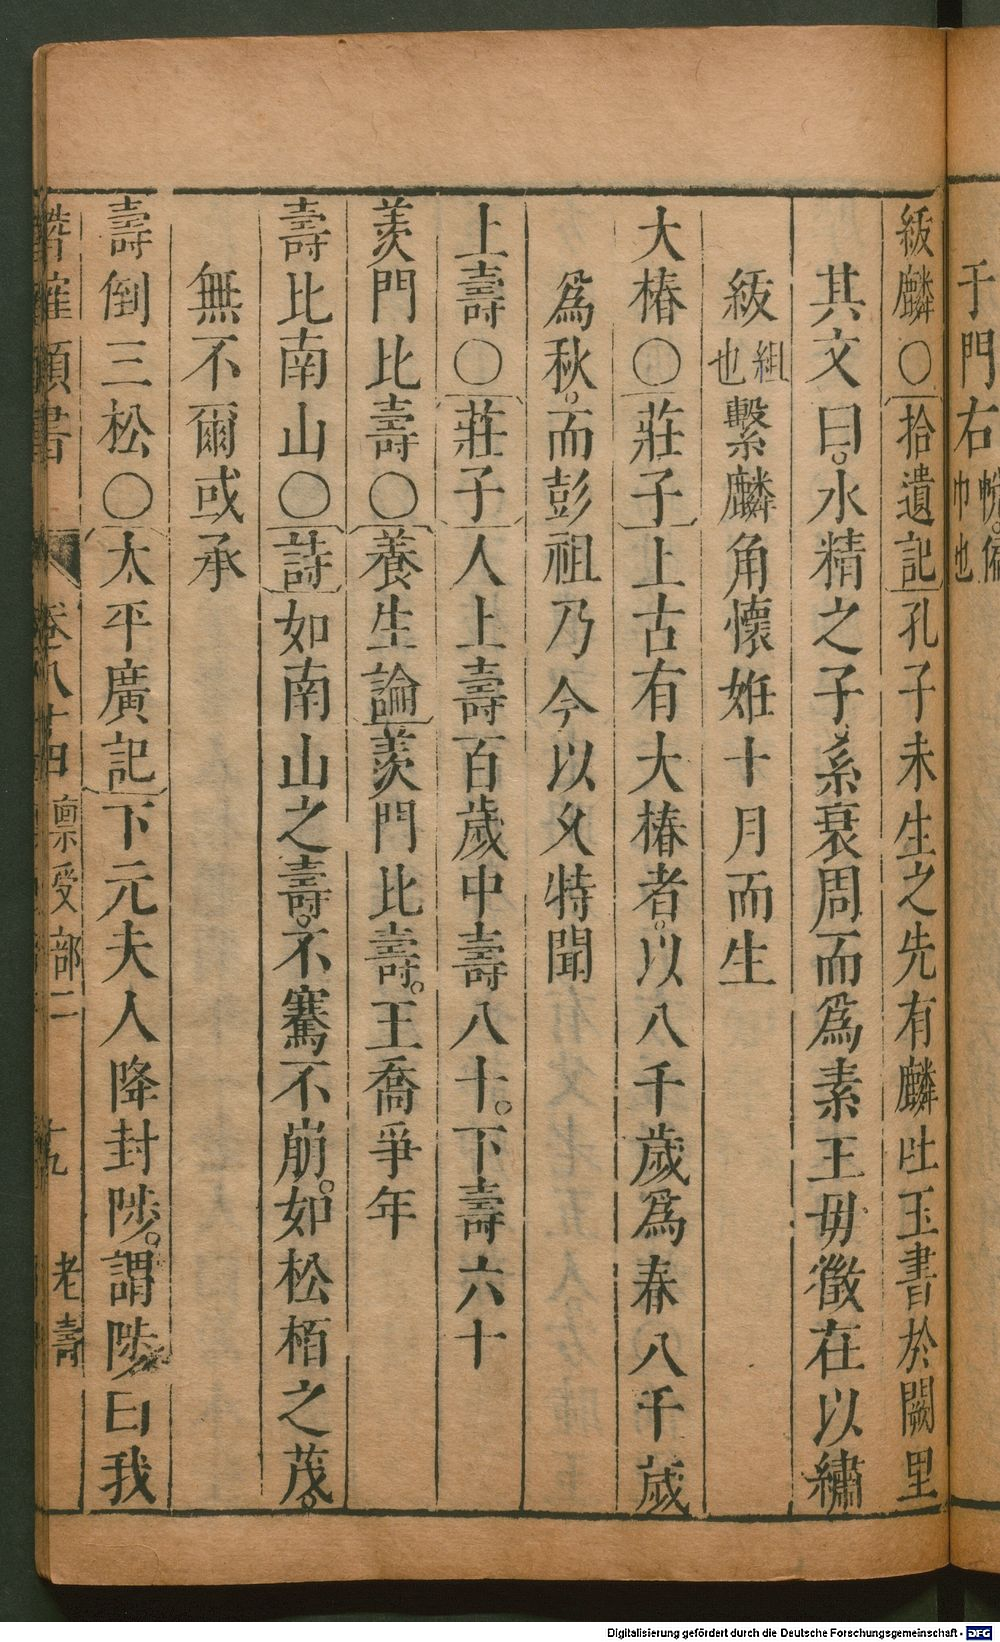 于門右帨佩巾也
紱麟○拾遺記孔子未生之先有麟吐玉書於闕里
其文曰水精之子系衰周而爲素王毋徵在以繡
紱組也繫麟角懷姙十月而生
大椿○莊子上古有大椿者以八千歲爲春八千歲
爲秋而彭祖乃今以久特聞
上壽○莊子人上壽百歲中壽八十下壽六十
羨門比壽○養生論羨門比壽王喬爭年
壽比南山○詩如南山之壽不騫不崩如松栢之茂
無不爾或承
壽倒三松○太平廣記下元夫人降封陟謂陟曰我
類書 卷八十四 禀受部二 十九 老壽
Digitalisierung gefördert durch die Deutsche Forschungsgemeinschaft - DFG